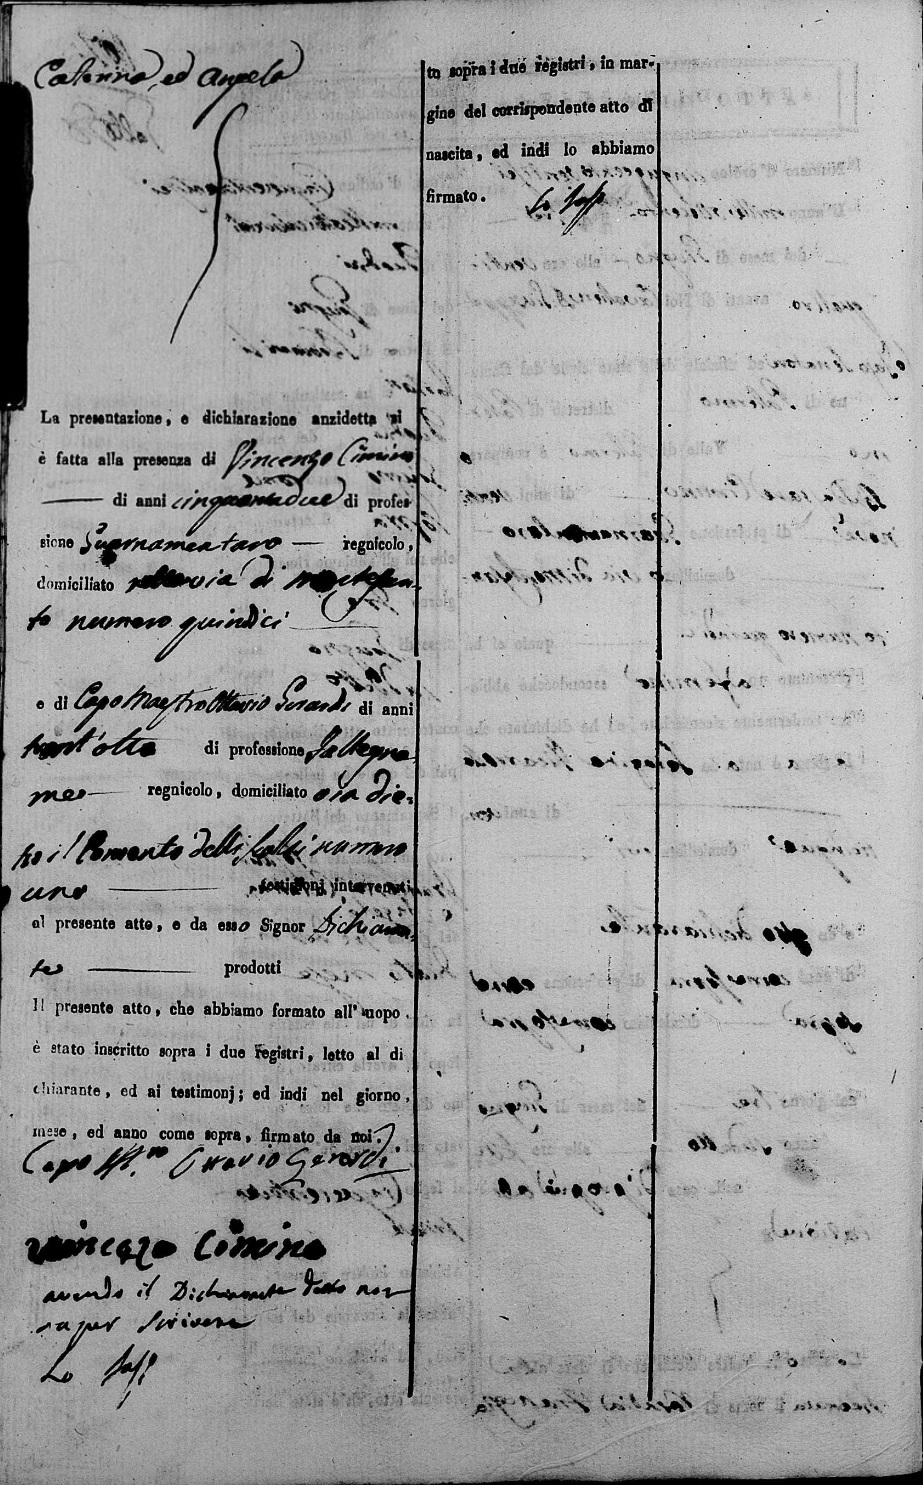 Caterina, ed Angela
La presentazione, e dichiarazione anzidetta si
è fatta alla presenza di Vincenzo Cimino
di anni cinquantadue di profes
sione Guarnamentaro regnicolo,
domiciliato via di Montesan-
to numero quindici
e di Capo Maestro Ottavio Gerardi di anni
trent'otto di professione Fallegna-
me regnicolo, domiciliato via die-
tro il Convento delli Scalzi numero
uno testimonj intervenuti
al presente atto, e da esso Signor Dichiaran-
te prodotti
Il presente atto, che abbiamo formato all' uopo,
è stato inscritto sopra i due registri, letto al di
chiarante, ed ai testimonj; ed indi nel giorno,
mese, ed anno come sopra, firmato da noi.
Capo M.ro Ottavio Gerardi
Vincenzo Cimino
avendo il Dichiarante detto non
saper scrivere
to sopra i due registri, in mar-
gine del corrispondente atto di
nascita, ed indi lo abbiamo
firmato.